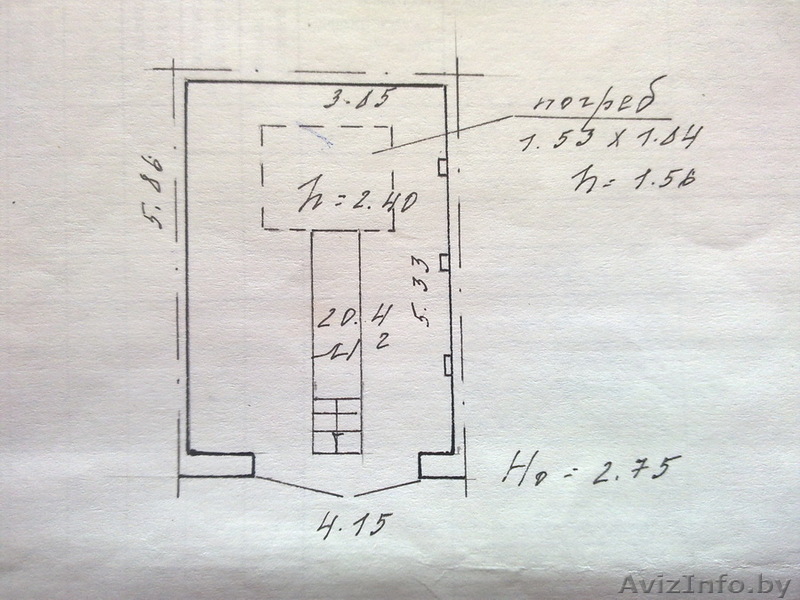 3.85
погреб
1.53 x 1.84
h = 1.56
5.86
h = 2.40
5.33
20.4
м 2
Hо = 2.75
4.15
AvizInfo.by